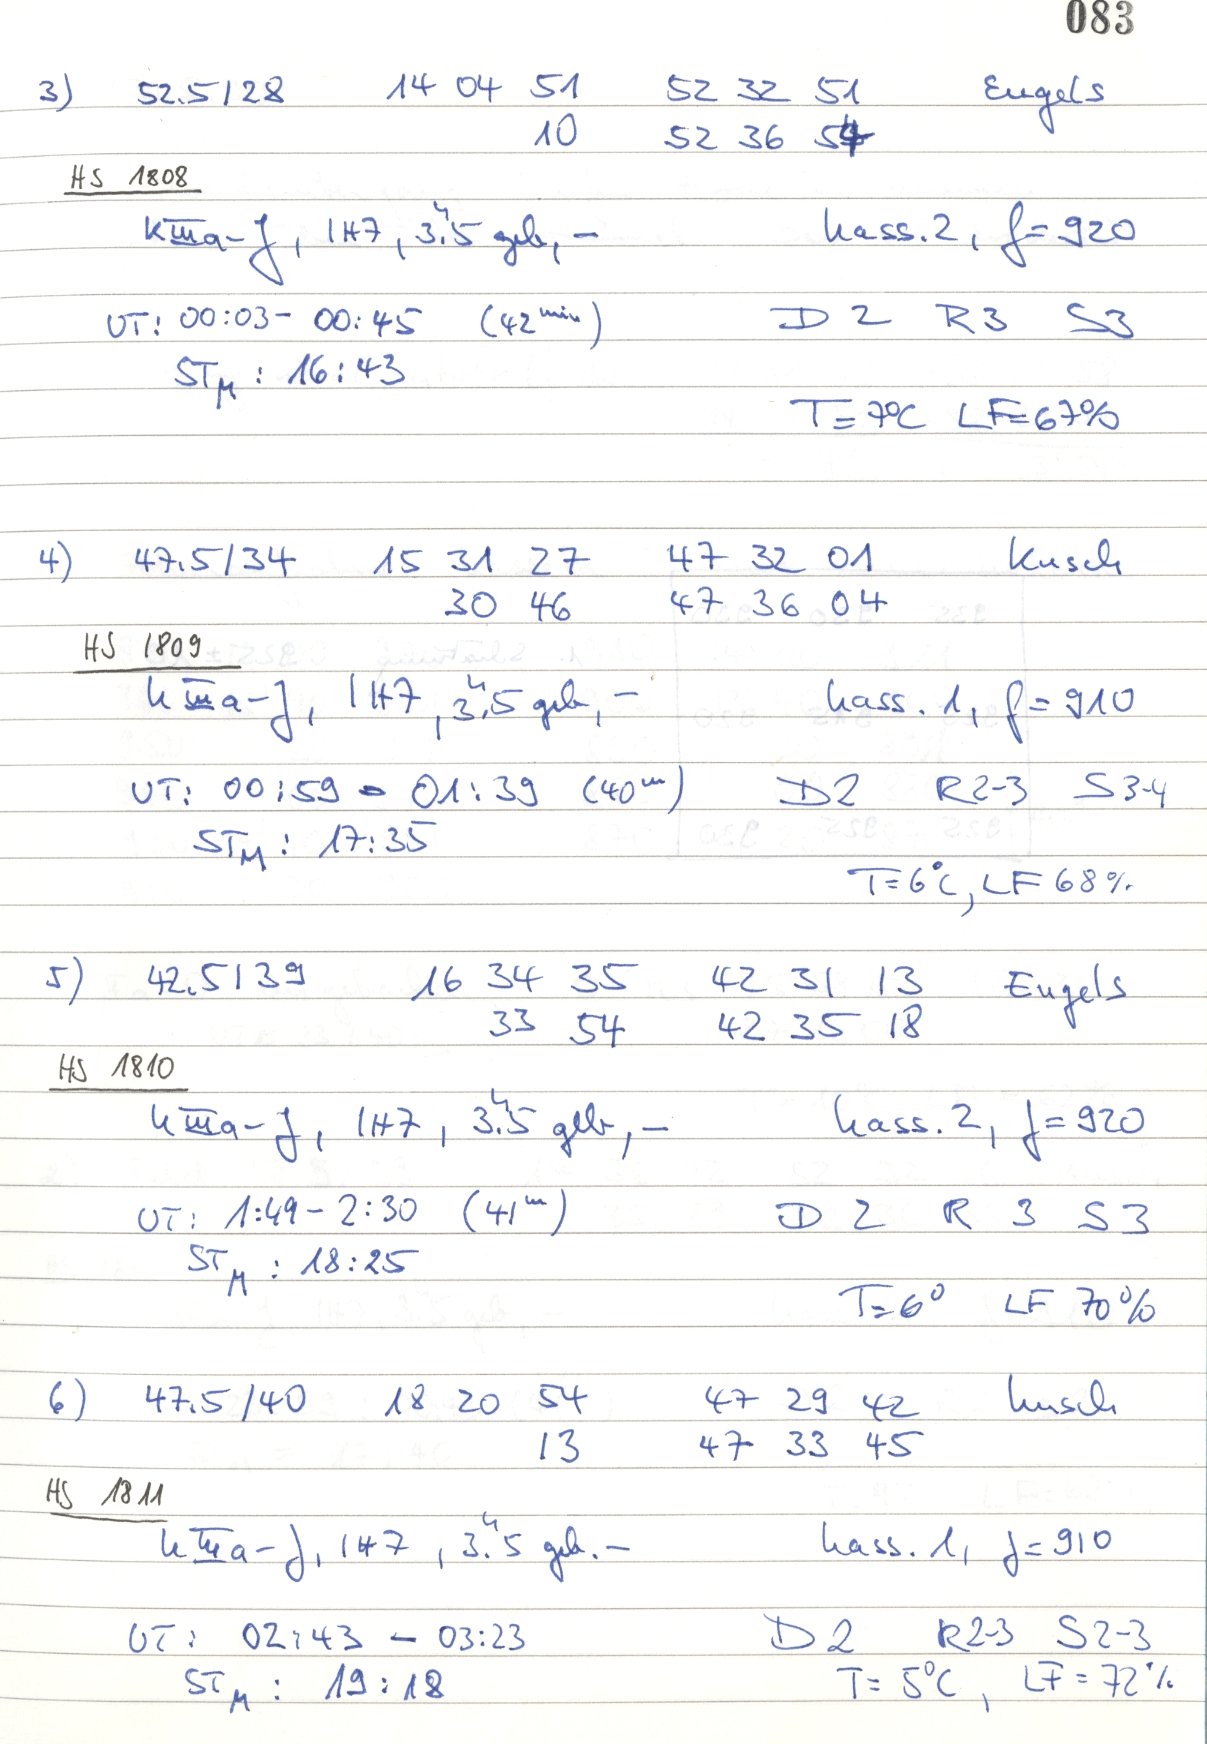 083
3) 52.5/28 14 04 51 52 32 51 Engels
10 52 36 54
HS 1808
K III a-J, 1H7, 3.ʰ5 geb, – Kass. 2, f=920
UT: 00:03 – 00:45 (42 min) D 2 R3 S3
STM : 16:43
T=7°C LF=67%
4) 47.5/34 15 31 27 47 32 01 Kusch
30 46 47 36 04
HS 1809
K III a-J, 1H7, 3.ʰ5 geb, – Kass. 1, f=910
UT: 00:59 – 01:39 (40m) D2 R2-3 S3-4
STM : 17:35
T=6°C, LF 68%
5) 42.5/39 16 34 35 42 31 13 Engels
33 54 42 35 18
HS 1810
K III a-J, 1H7, 3.ʰ5 geb, – Kass. 2, f=920
UT: 1:49 – 2:30 (41m) D 2 R 3 S3
STM : 18:25
T=6° LF 70%
6) 47.5/40 18 20 54 47 29 42 Kusch
13 47 33 45
HS 1811
K III a-J, 1H7, 3.ʰ5 geb. – Kass. 1, f=910
UT: 02:43 – 03:23 D2 R2-3 S2-3
STM : 19:18 T= 5°C, LF=72%